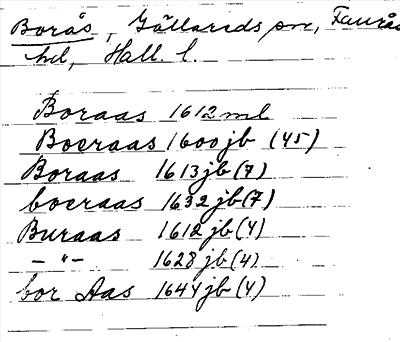 Borås, Gällareds sn, Faurås
hd, Hall. l.
Boraas 1612 ml
Boeraas 1600 jb (45)
Boraas 1613 jb (7)
boeraas 1632 jb (7)
Buraas 1612 jb (4)
— " — 1628 jb (4)
bor Aas 1644 jb (4)